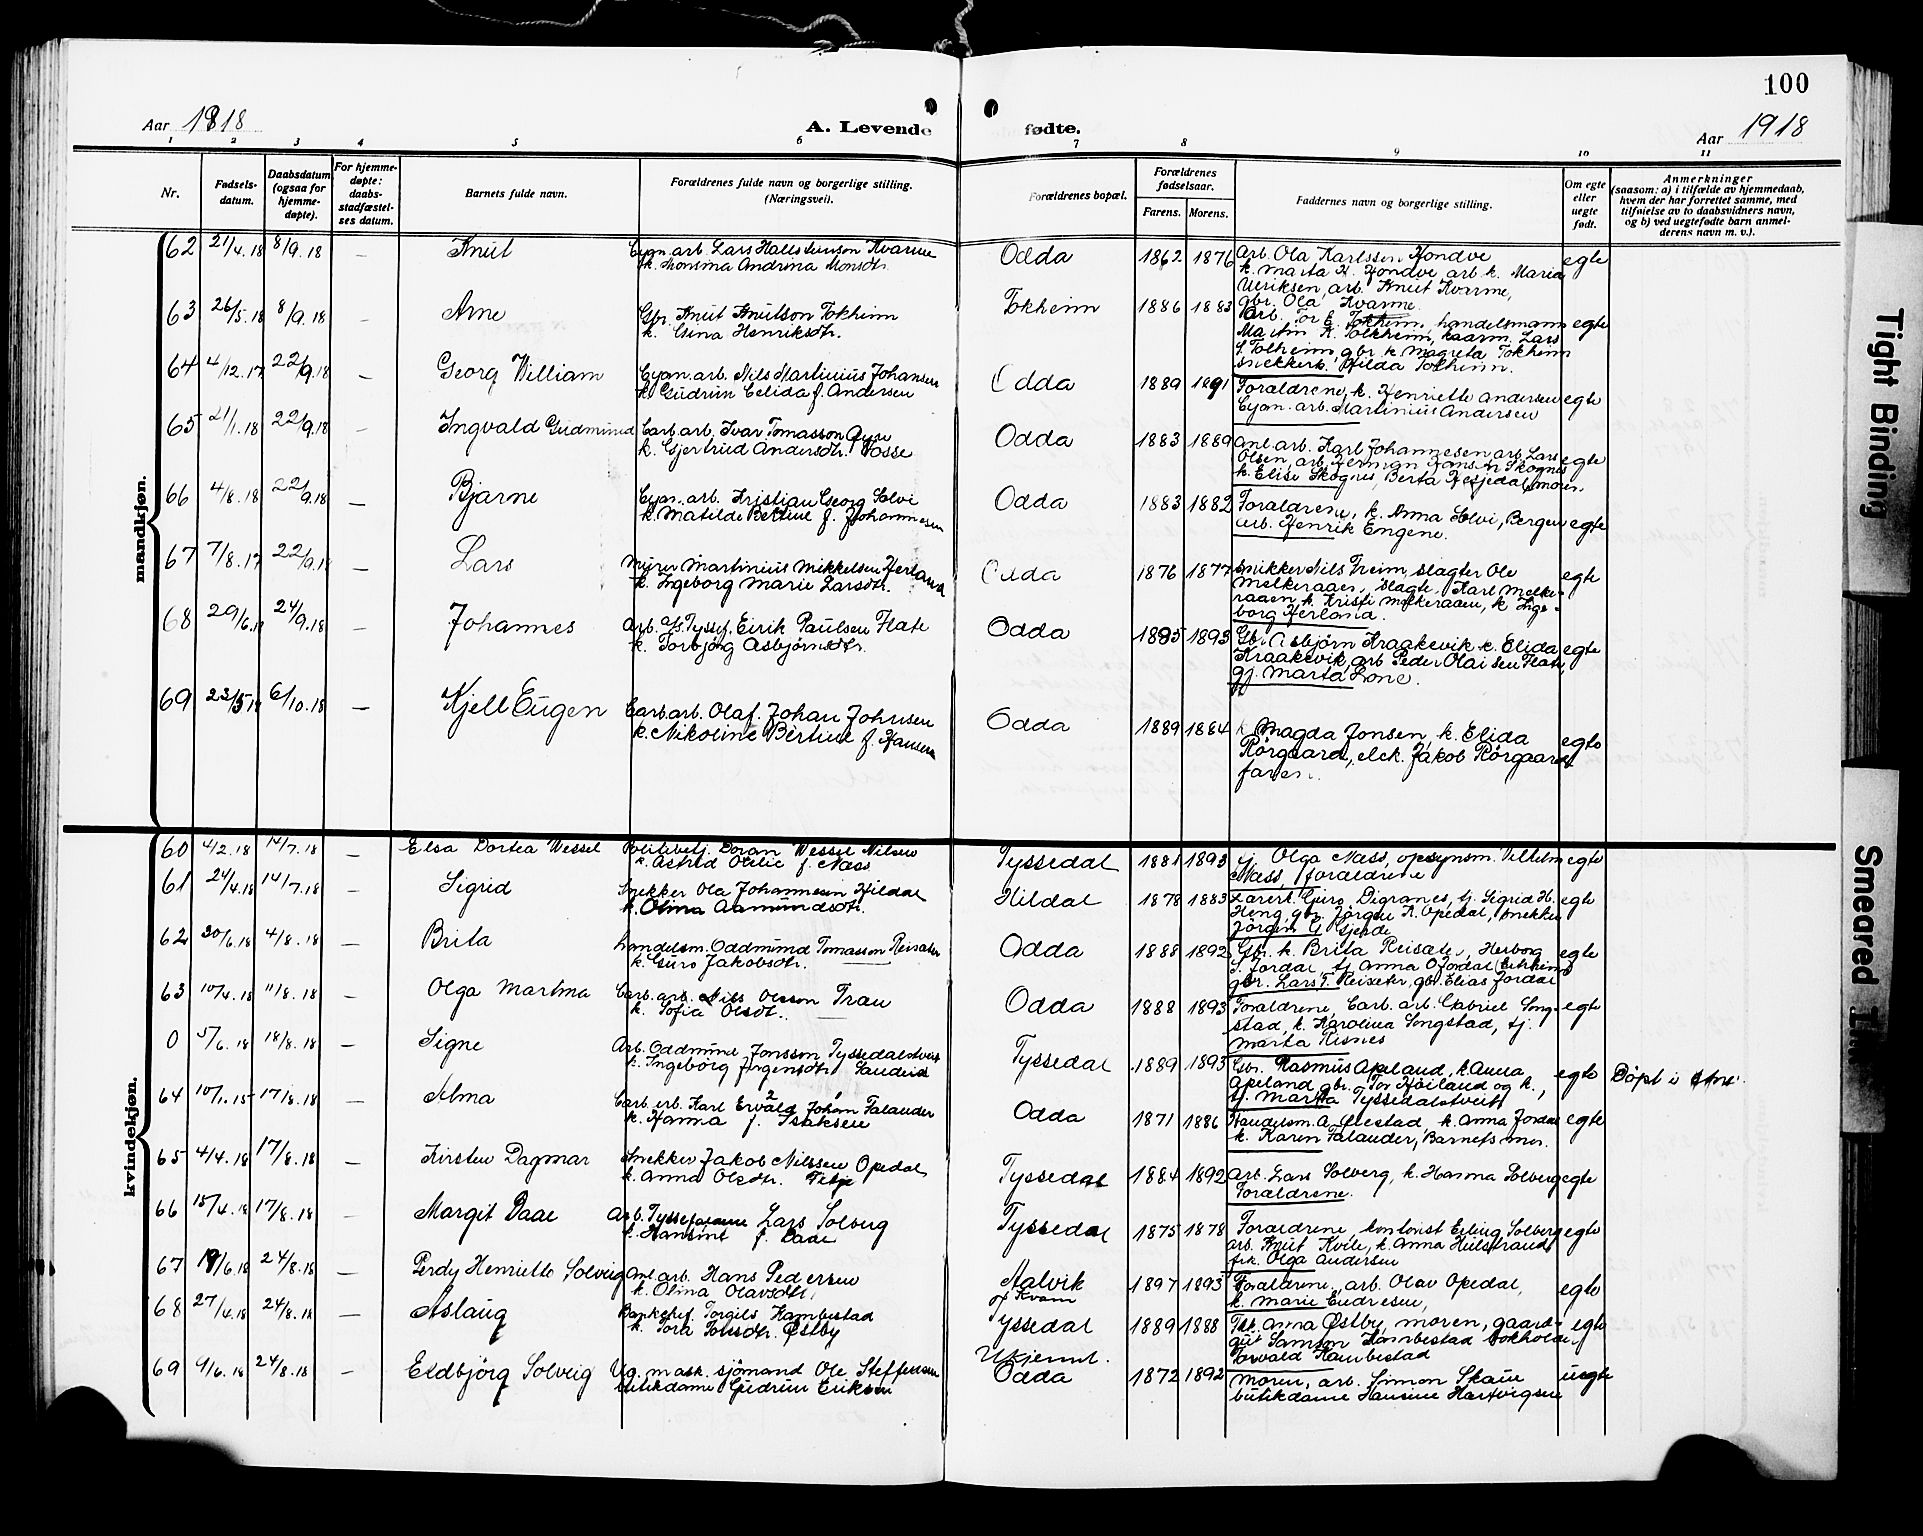 100
Aar 1918
A. Levende fødte.
Aar 1918
1 2 3 4 5 6 7 8 9 10 11
Nr.
Fødsels-
datum.
Daabsdatum
(ogsaa for
hjemme-
døpte).
For hjemme-
døpte:
daabs-
stadfæstel-
ses datum.
Barnets fulde navn.
Forældrenes fulde navn og borgerlige stilling.
(Næringsvei).
Forældrenes bopæl.
Forældrenes
fødselsaar.
Farens. Morens.
Faddernes navn og borgerlige stilling.
Om egte
eller
uegte
født.
Anmerkninger
(saasom: a) i tilfælde av hjemmedaab,
hvem der har forrettet samme, med
tilføielse av to daabsvidners navn,
og b) ved uegtefødte barn anmel-
derens navn m. v.).
mandkjøn.
62 21/4.18 8/9.18 — Knut Cyan. arb. Lars Hallsteinson Kvarme Odda 1862 1876 Arb. Ola Karlssen Hondve egte
k. Monsina Andrina Monsdtr. k. Marta K. Hondve arb. k. Maria
Ulriksen, arb. Knut Kvarme,
gbr. Ola Kvarme
63 26/5.18 8/9.18 — Arne Gbr. Knut Knutson Tokheim Tokheim 1886 1883 Arb. Tor E. Tokheim, handelsmann egte
k. Gina Henriksdtr. Martin K. Tokheim, kaarm. Lars
S. Tokheim, gbr. k. Magreta Tokheim
snekkerk. Hilda Tokheim.
64 4/12.17 22/9.18 — Georg William Cyan. arb. Nils Martinius Johansen Odda 1889 1891 Foraldrene, k. Henriette Andersen egte
k. Gudrun Elida f. Andersen Cyan. arb. Martinius Andersen
65 21/1.18 22/9.18 — Ingvald Gudmund Carb. arb. Ivar Tomasson Odda 1883 1889 Anl. arb. Karl Johannesen arb. Lars egte
k. Gjertrud Andersdtr. Vosse Olsen, arb. Herman Hansen Skognes
k. Elise Skognes, Berta moren.
66 4/8.18 22/9.18 — Bjarne Cyan. arb. Kristian Georg Solvi Odda 1883 1882 Foraldrene, k. Anna Solvi, Bergen egte
k. Matilde Bertine f. Johannesen arb. Henrik Engene.
67 7/8.17 22/9.18 — Lars Murer Martinius Mikkelsen Herland Odda 1876 1877 Snikker Nils Freim, slagter Ole egte
k. Ingeborg Marie Larsdtr. Melkeraaen, slagte. Karl Melke-
raaen k. Kristi Melkeraaen, k. Inge-
borg Herland.
68 29/6.18 24/9.18 — Johannes Arb. Eirik Paulsen Flate Odda 1895 1893 Gbr. Asbjørn Kraakevik k. Elida egte
k. Torbjørg Asbjørnsdtr. Kraakevik, arb. Peder Olaisen Flate,
gj. Marta Lone.
69 23/5.18 6/10.18 — Kjell Eugen Carb. arb. Olaf Johan Johnsen Odda 1889 1884 k. Magda Jonsen, k. Elida egte
k. Nikoline Bertine f. Hansen Rørgaard, elek. Jakob Rørgaard
faren.
kvindekjøn.
60 4/2.18 14/7.18 — Elsa Dortea Wessel Politibetj. Wessel Nilsen Tyssedal 1881 1893 tj. Olga Næss, opsynsm. Vilhelm egte
k. Astrid Otilie f. Næss Næss, foraldrene
61 24/4.18 14/7.18 — Sigrid Snekker Ola Johannesen Hildal Hildal 1878 1883 Lærerk. Guro Digranes, tj. Sigrid H. egte
k. Olina Aamundsdtr. Heng, gbr. Jørgen K. Opedal, snekker
Jørgen G. Gjerde
62 30/6.18 4/8.18 — Brita Handelsm. Oddmund Tomasson Reisæter Odda 1888 1892 Gbr. k. Brita Reisæte, Herborg egte
k. Guro Jakobsdtr. S. Jordal, tj. Anna O. Jordal
gbr. Lars T. Reisæter, gbr. Elias Jordal
63 10/4.18 11/8.18 — Olga Martina Carb. arb. Nils Olsson Trau Odda 1888 1893 Foraldrene, Carb. arb. Gabriel Song- egte
k. Sofia Olsdt. stad, k. Karolina Songstad, tj.
Marta Risnes
0 5/6.18 18/8.18 — Signe Arb. Oddmund Jonsson Tyssedalstveit Tyssedal 1889 1893 Gbr. Rasmus Apeland, k. Anna egte Døpt i
k. Ingebørg Jørgensdtr. Apeland, gbr. Tor Høiland og k.,
tj. Marta Tyssedalstveit
64 10/1.15 17/8.18 — Alma Carb. arb. Karl Ervald Johan Falander Odda 1871 1886 Handelsm. A. Ølestad, k. Anna Jordal egte
k. Hanna f. Isaksen k. Karen Falander, Barnets mor.
65 4/4.18 17/8.18 — Kirsten Dagmar Snekker Jakob Nilssen Opedal Tyssedal 1884 1892 Arb. Lars Solverg, k. Hanna Solverg egte
k. Anna Olsdtr. Foraldrene.
66 15/4.18 17/8.18 — Margit Daae Arb. Lars Solverg Tyssedal 1875 1878 Foraldrene, kontorist Erling Solverg egte
k. Hansine f. Daae arb. Knut Kvile, k. Anna Hulstrand,
frk. Olga Andersen
67 19/6.18 24/8.18 — Perdy Henriette Solveig Anl. arb. Hans Pedersen Aalvik 1897 1893 Foraldrene, arb. Olav Opedal, egte
k. Olina Olavsdtr. Kvam k. Marie Endresen,
68 27/4.18 24/8.18 — Aslaug Bankchef Torgils Kambestad Tyssedal 1889 1888 Frk. Anna Østby, moren, gaard- egte
k. Tora Østby gut Samson Kambestad bokholder
Torvald Kambestad
69 9/6.18 24/8.18 — Eldbjörg Solveig Ug. mask. sjömand Ole Steffensen Ukjennt. 1872 1892 Moren, arb. Simon Skaue uegte
butikdame Gudrun Erikson Odda butikdame Hansine Hartvigsen
Tight Binding
Smeared